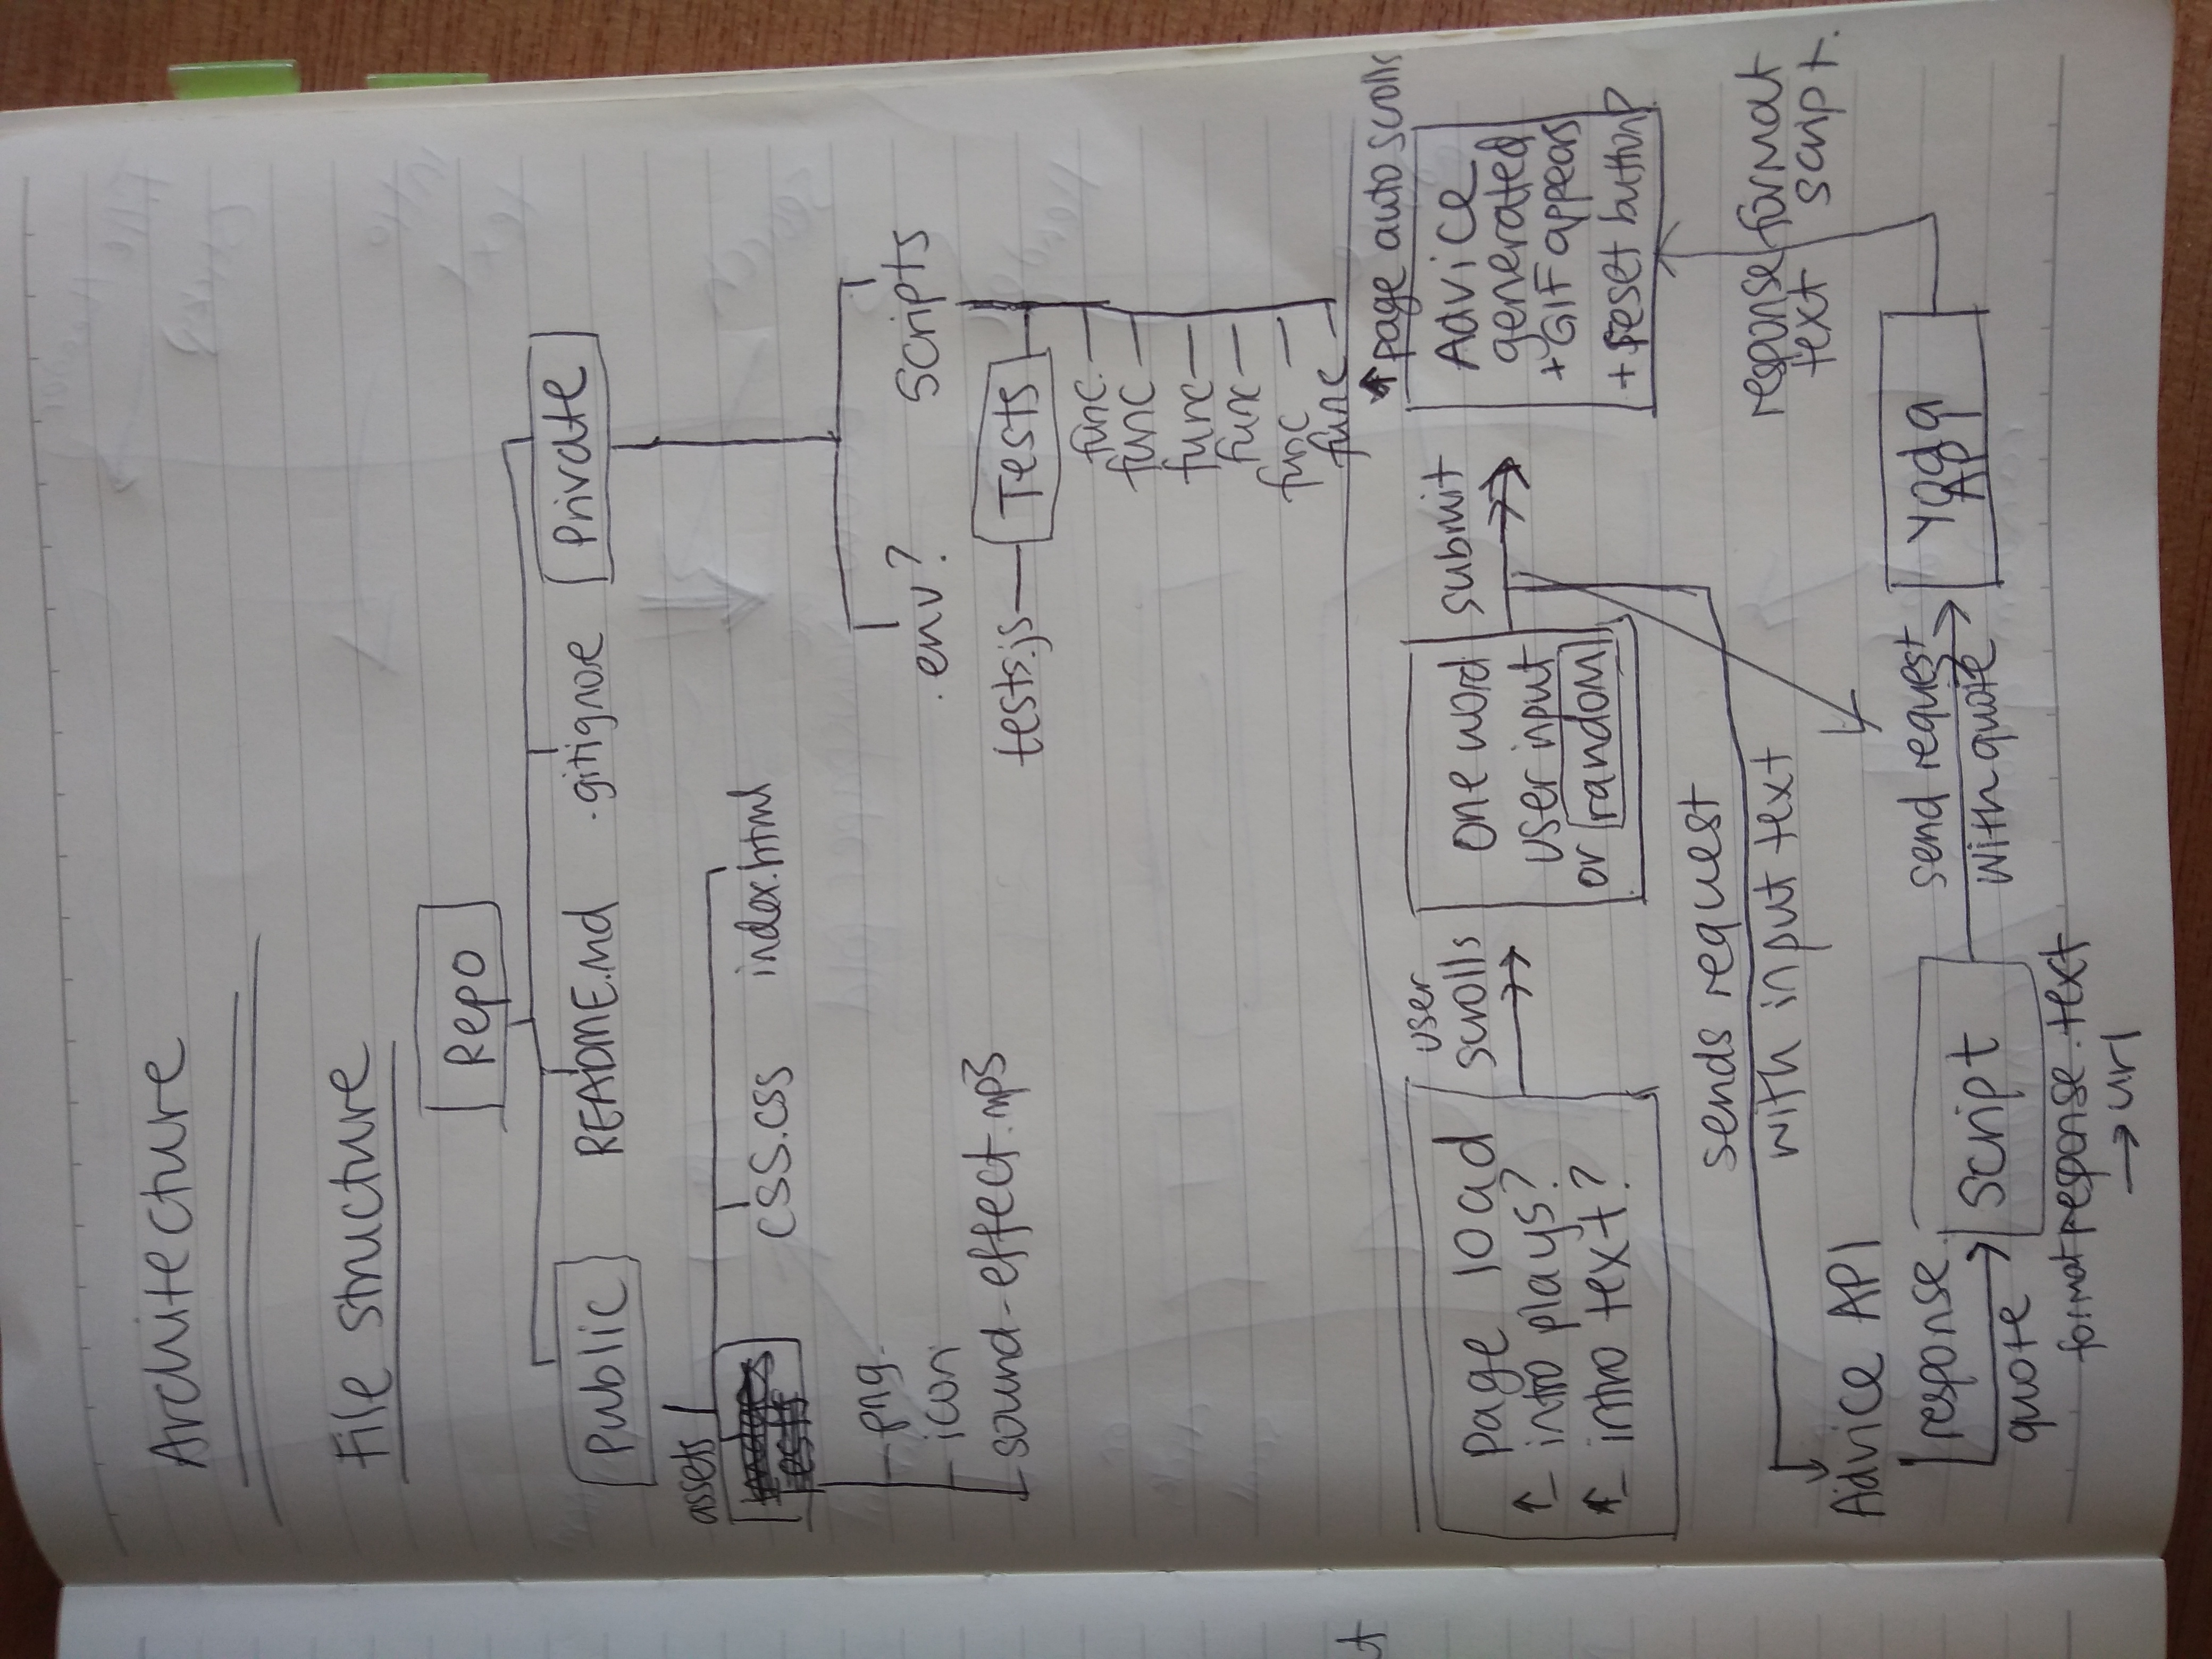 Architecture
File structure
Repo
Public README.md .gitignore Private
assets
images
Tests
css.css index.html
png
icon
sound-effect.mp3
.env? Scripts
tests.js Tests
func.
func
func
func
func
func
page auto scrolls
page load
intro plays?
intro text?
user
scrolls
one word
user input
or random
submit
Advice
generated
+ GIF appears
+ reset button?
sends request
with input text
response
text
format
script.
Advice API
response
quote
script
format response.text
→ url
send request
with quote
Yoda
API
t